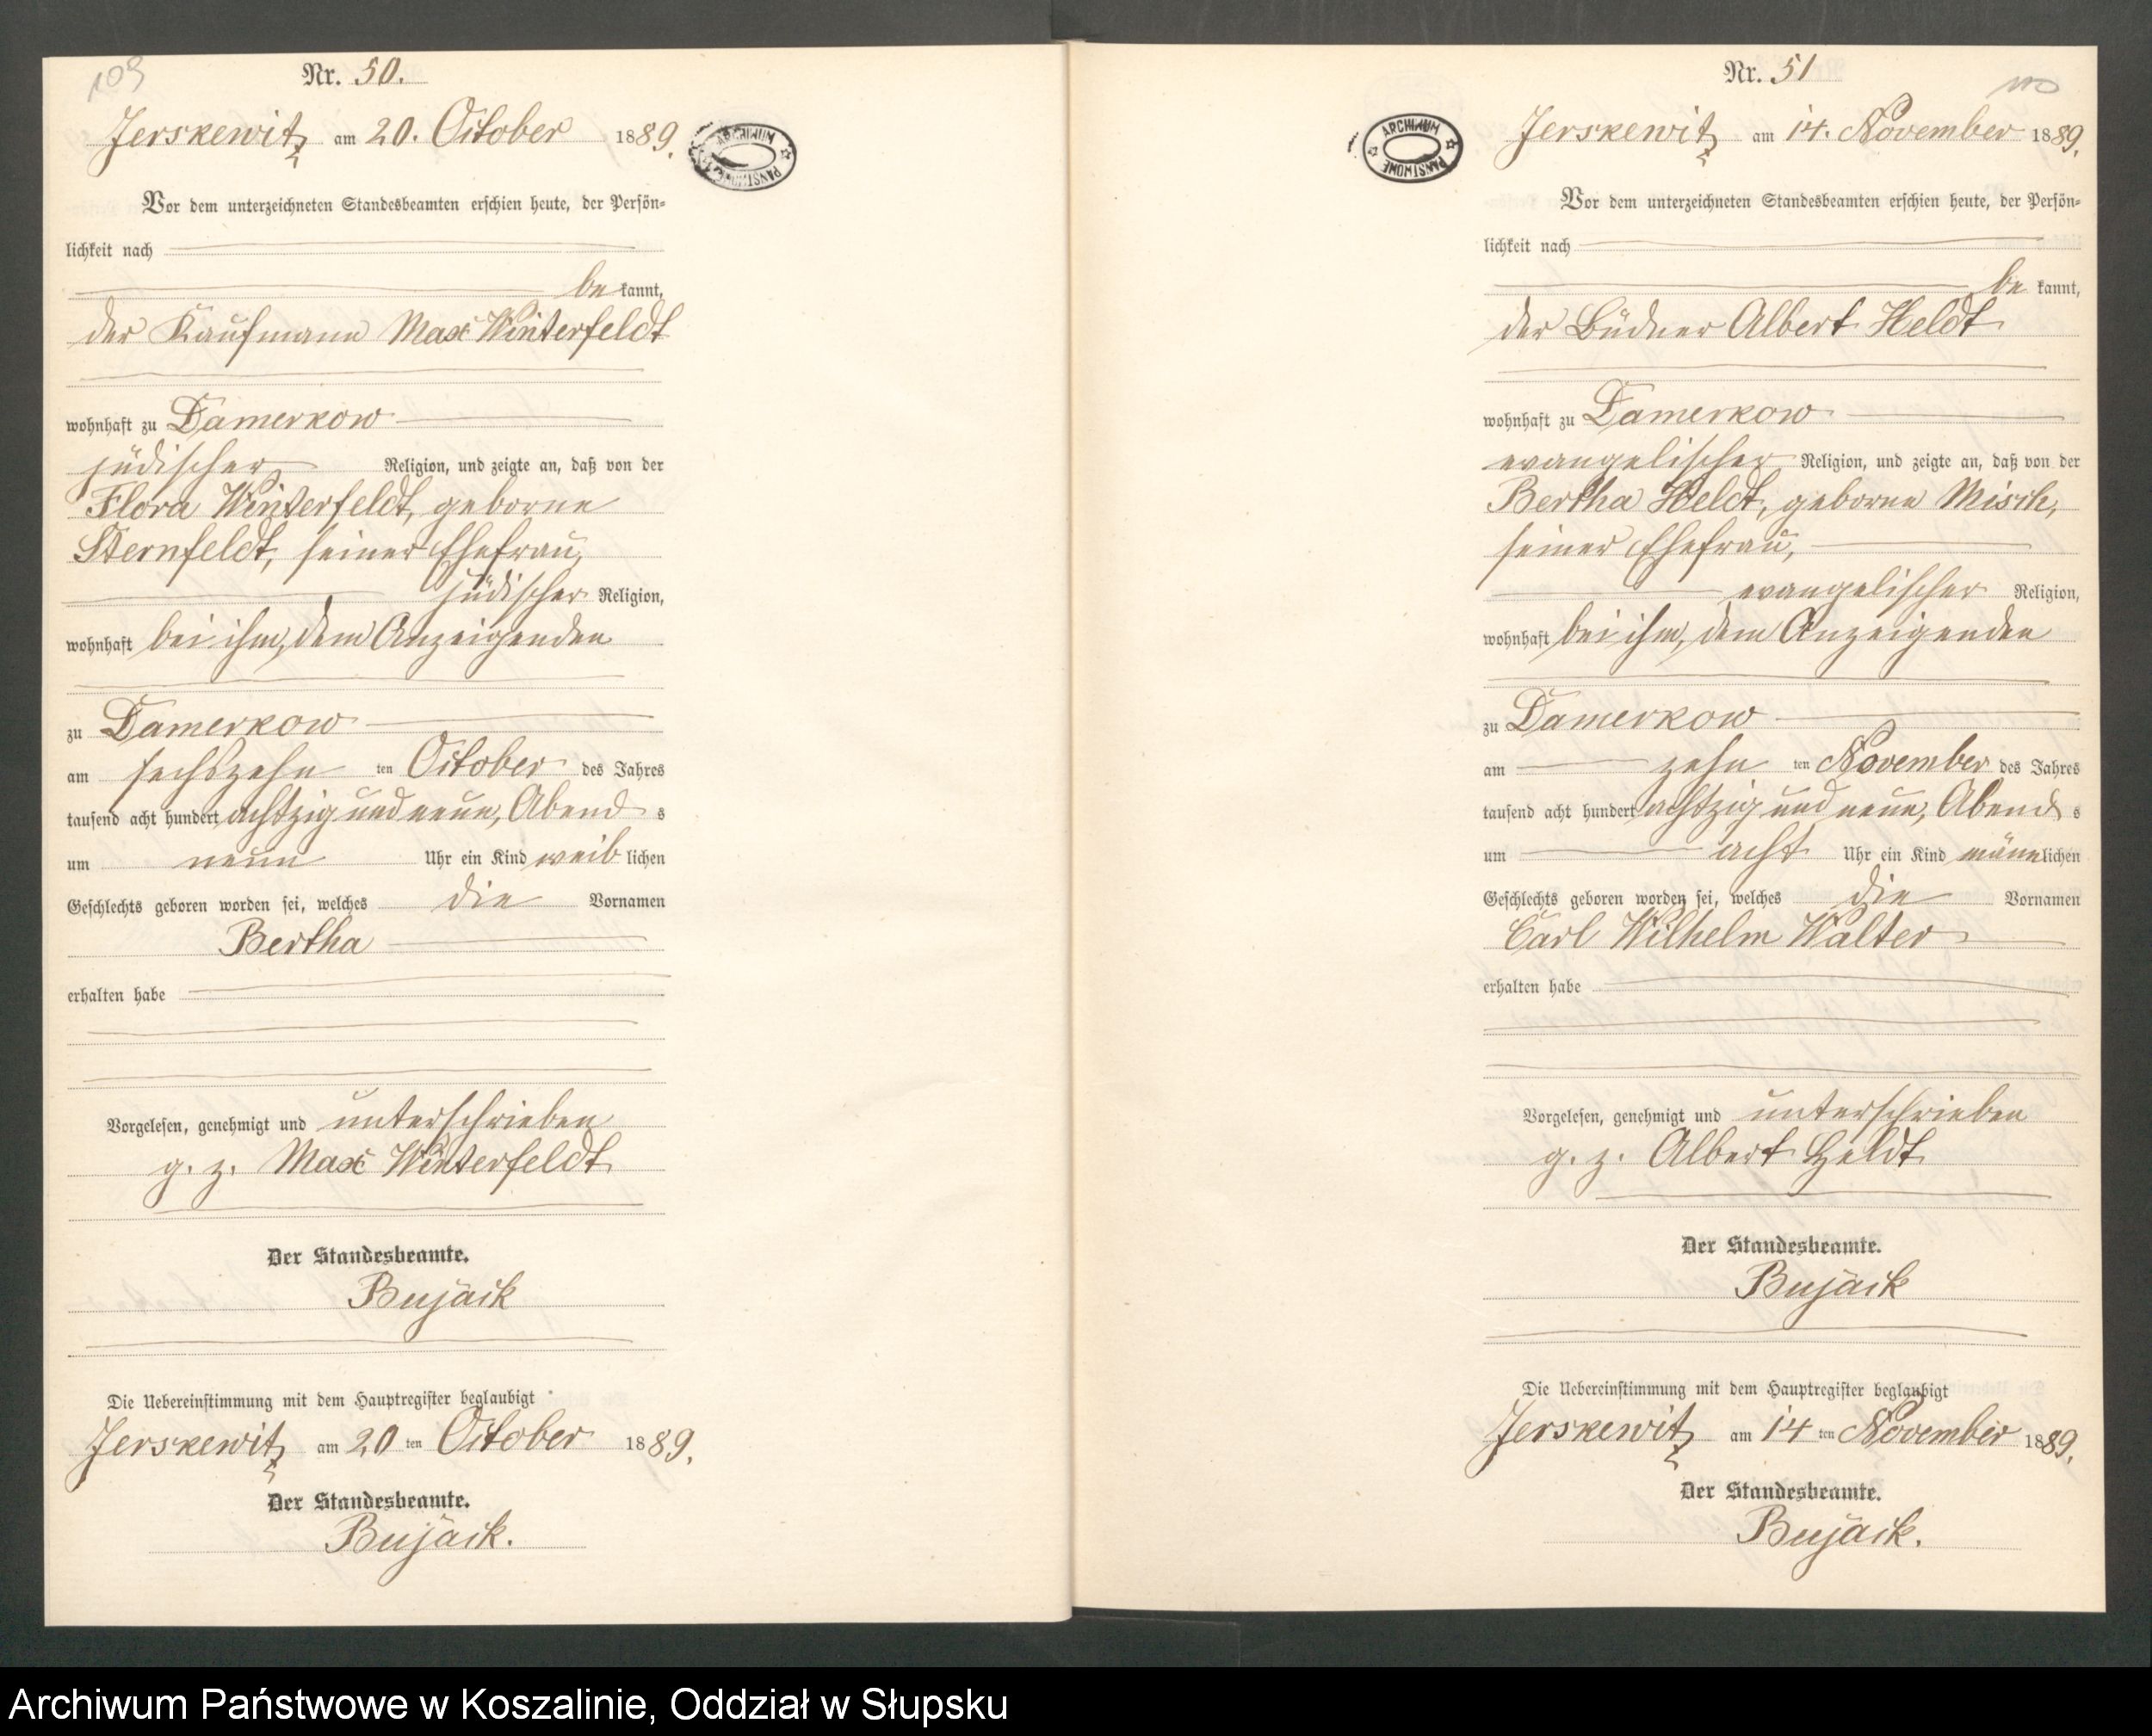 109
Nr. 50.
Jerskewitz am 20. October 1889.
ARCHIWUM PAŃSTWOWE
Vor dem unterzeichneten Standesbeamten erschien heute, der Persön=
lichkeit nach
be kannt,
der Kaufmann Max Winterfeldt
wohnhaft zu Damerkow
jüdischer Religion, und zeigte an, daß von der
Flora Winterfeldt, geborne
Sternfeldt, seiner Ehefrau,
jüdischer Religion,
wohnhaft bei ihm, dem Anzeigenden
zu Damerkow
am sechszehn ten October des Jahres
tausend acht hundert achtzig und neun, Abend s
um neun Uhr ein Kind weib lichen
Geschlechts geboren worden sei, welches die Vornamen
Bertha
erhalten habe
Vorgelesen, genehmigt und unterschrieben
g. z. Max Winterfeldt
Der Standesbeamte.
Bujack
Die Uebereinstimmung mit dem Hauptregister beglaubigt
Jerskewitz am 20 ten October 1889.
Der Standesbeamte.
Bujack.
110
Nr. 51
Jerskewitz am 14. November 1889.
ARCHIWUM PAŃSTWOWE
Vor dem unterzeichneten Standesbeamten erschien heute, der Persön=
lichkeit nach
be kannt,
der Büdner Albert Heldt
wohnhaft zu Damerkow
evangelischer Religion, und zeigte an, daß von der
Bertha Heldt, geborne Misch,
seiner Ehefrau,
evangelischer Religion,
wohnhaft bei ihm, dem Anzeigenden
zu Damerkow
am zehn ten November des Jahres
tausend acht hundert achtzig und neun, Abend s
um acht Uhr ein Kind männlichen
Geschlechts geboren worden sei, welches die Vornamen
Carl Wilhelm Walter
erhalten habe
Vorgelesen, genehmigt und unterschrieben
g. z. Albert Heldt
Der Standesbeamte.
Bujack
Die Uebereinstimmung mit dem Hauptregister beglaubigt
Jerskewitz am 14 ten November 1889.
Der Standesbeamte.
Bujack.
Archiwum Państwowe w Koszalinie, Oddział w Słupsku